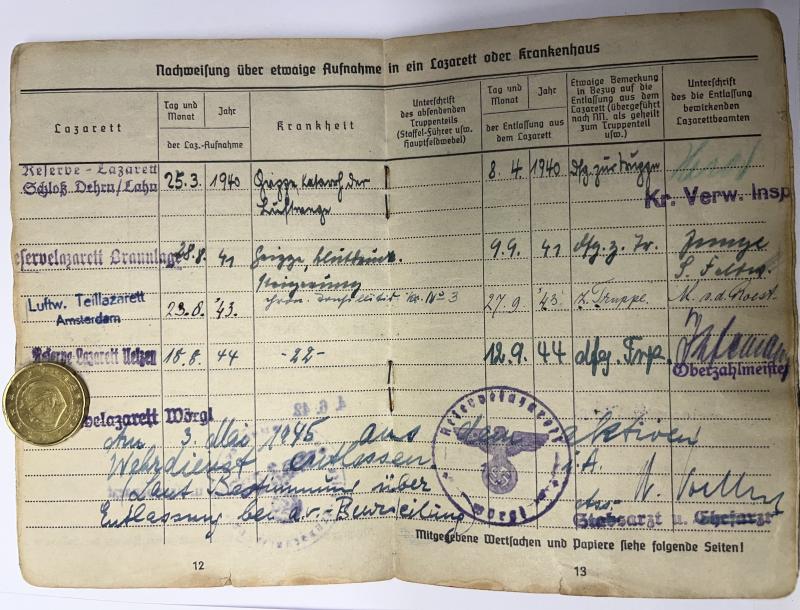 Nachweisung über etwaige Aufnahme in ein Lazarett oder Krankenhaus
Lazarett
Tag und Monat
Jahr
der Laz.-Aufnahme
Krankheit
Unterschrift des absendenden Truppenteils (Staffel-Führer usw. Hauptfeldwebel)
Tag und Monat
Jahr
der Entlassung aus dem Lazarett
Etwaige Bemerkung in Bezug auf die Entlassung aus dem Lazarett (übergeführt nach NN. als geheilt zum Truppenteil usw.)
Unterschrift des die Entlassung bewirkenden Lazarettbeamten
Reserve-Lazarett
Schloß Dehrn/Lahn 25.3. 1940 Grippe Katarrh der 8. 4. 1940 Dfg. zur Truppe
Luftwege
Kr. Verw. Insp
Reservelazarett Braunlage 28.8. 41 Grippe, 9.9. 41 dfg. z. Tr.
Luftw. Teillazarett
Amsterdam 23.8. '43. Kr. No 3 27.9. '43. z. Truppe.
Reserve-Lazarett 18.8. 44 -22- 12.9. 44 dfg. Trp.
Oberzahlmeister
Wörgl
Am 3. Mai 1945 aus dem aktiven
Wehrdienst entlassen. i.A.
(Laut Bestimmung über
Entlassung bei av.-Beurteilung)
Reservelazarett
Wörgl
Ass.
Stabsarzt u. Chefarzt
Mitgegebene Wertsachen und Papiere siehe folgende Seiten!
12
13